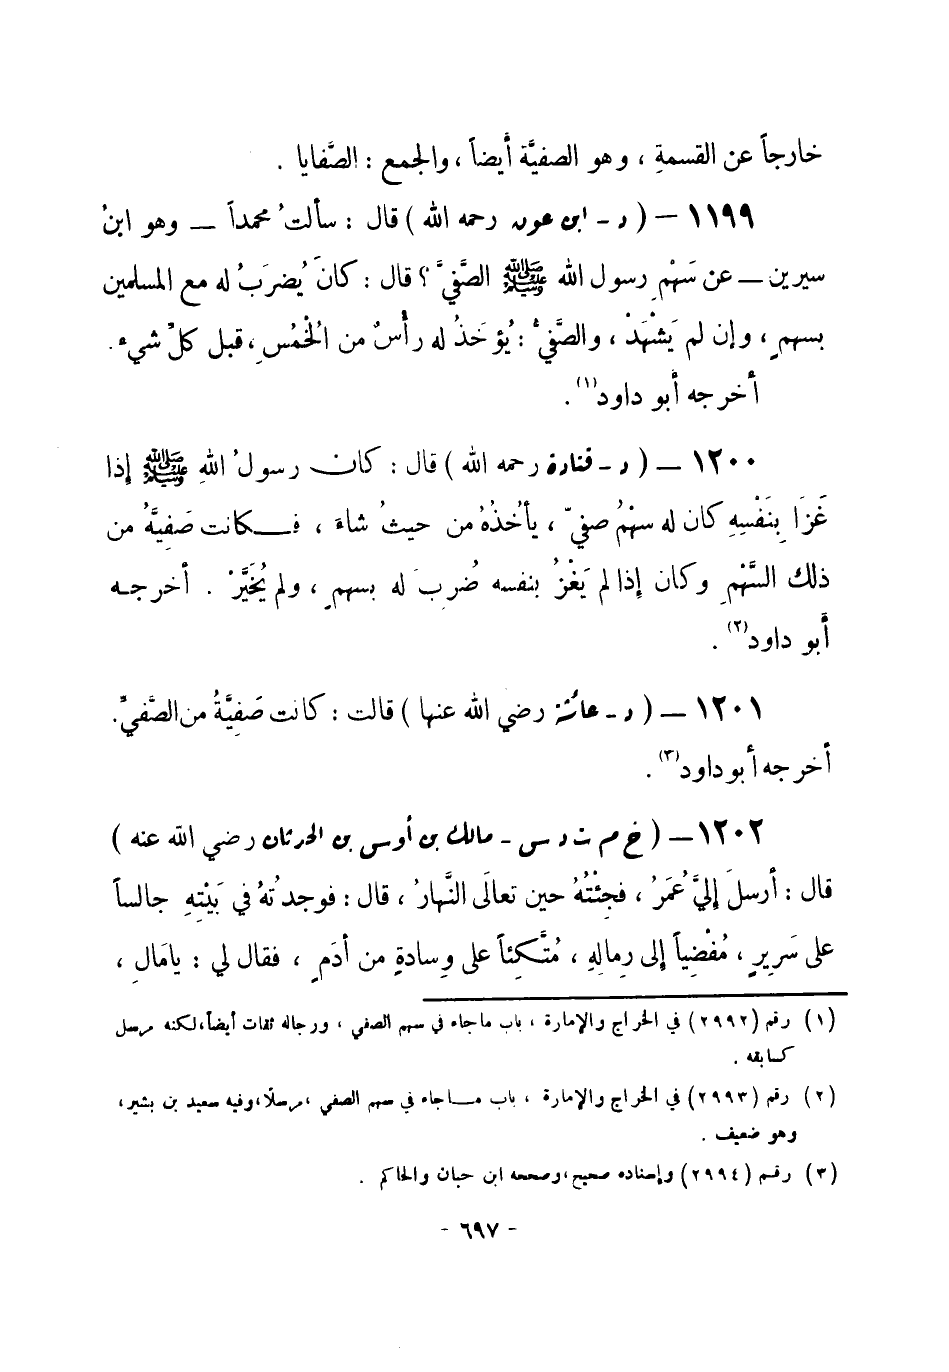 خارجاً عن القسمةِ ، وهو الصفيَّة أيضاً ، والجمع : الصَّفايا .
١١٩٩ – ( د - ابن عون رحمه الله ) قال : سألتُ محمداً – وهو ابنُ
سيرين – عن سَهْمِ رسول الله ﷺ الصَّفيَّ ؟ قال : كانَ يُضرَبُ له مع المسلمين
بسهمٍ ، وإن لم يَشْهَدْ ، والصَّفيُّ : يُؤخَذُ له رأْسٌ من الْخُمُسِ ، قبل كلِّ شيء .
أخرجه أبو داود(١) .
١٢٠٠ – ( د - قتادة رحمه الله ) قال : كان رسولُ اللهِ ﷺ إذا
غَزَا بِنَفْسِهِ كان له سهْمُ صفيّ ، يأخُذُهُ من حيثُ شاءَ ، فكانت صَفِيَّةُ من
ذلك السَّهْمِ وكان إذا لم يَغْزُ بنفسه ضُرِبَ له بسهمٍ ، ولم يُخَيَّرْ . أخرجه
أبو داود(٢) .
١٢٠١ – ( د - عائشة رضي الله عنها ) قالت : كانت صَفِيَّةُ من الصَّفيِّ .
أخرجه أبو داود(٣) .
١٢٠٢ – ( خ م ت د س - مالك بن أوس بن الحدثان رضي الله عنه )
قال : أرسلَ إليَّ عُمَرُ ، فجِئْتُهُ حين تعالَى النَّهارُ ، قال : فوجدتُهُ في بَيْتِهِ جالساً
على سَرِيرٍ ، مُفْضِياً إلى رِمالِهِ ، مُتَّكِئاً على وِسادةٍ من أدَمٍ ، فقال لي : يا مَالِ ،
(١) رقم (٢٩٩٢) في الخراج والإمارة ، باب ما جاء في سهم الصفي ، ورجاله ثقات أيضاً، لكنه مرسل
كسابقه .
(٢) رقم (٢٩٩٣) في الخراج والإمارة ، باب ما جاء في سهم الصفي ، مرسلًا، وفيه سعيد بن بشير،
وهو ضعيف .
(٣) رقم (٢٩٩٤) وإسناده صحيح، وصححه ابن حبان والحاكم .
- ٦٩٧ -